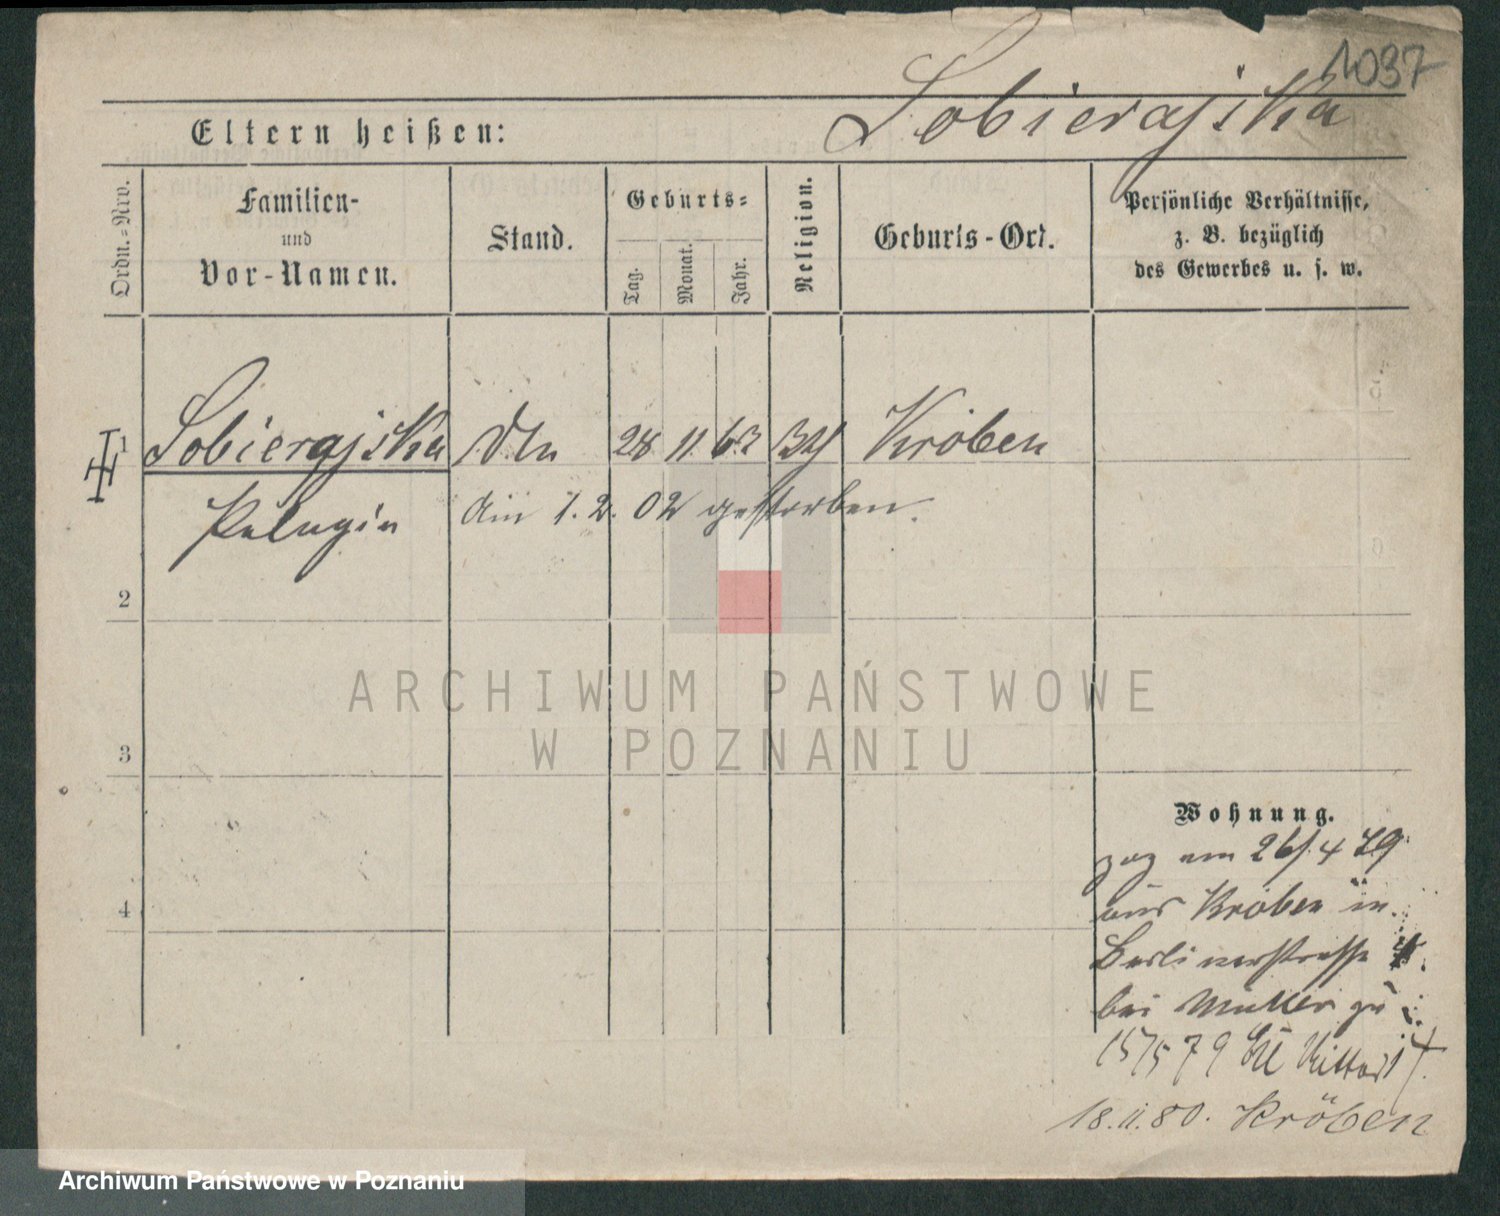 1037
Sobierajska
Eltern heißen:
Ordn.-Nro.
Familien-
und
Vor-Namen.
Stand.
Geburts-
Tag.
Monat.
Jahr.
Religion.
Geburts-Ort.
Persönliche Verhältnisse,
z. B. bezüglich
des Gewerbes u. s. w.
1 Sobierajska 28 11 63 Kröben
Pelagia am 1. 2. 02 gestorben.
2
3
4
ARCHIWUM PAŃSTWOWE
W POZNANIU
Wohnung.
zog am 26/4 79
aus Kröben in
Berlinerstrasse
bei Müller zu
15/5 79
18.11.80. Kröben
Archiwum Państwowe w Poznaniu